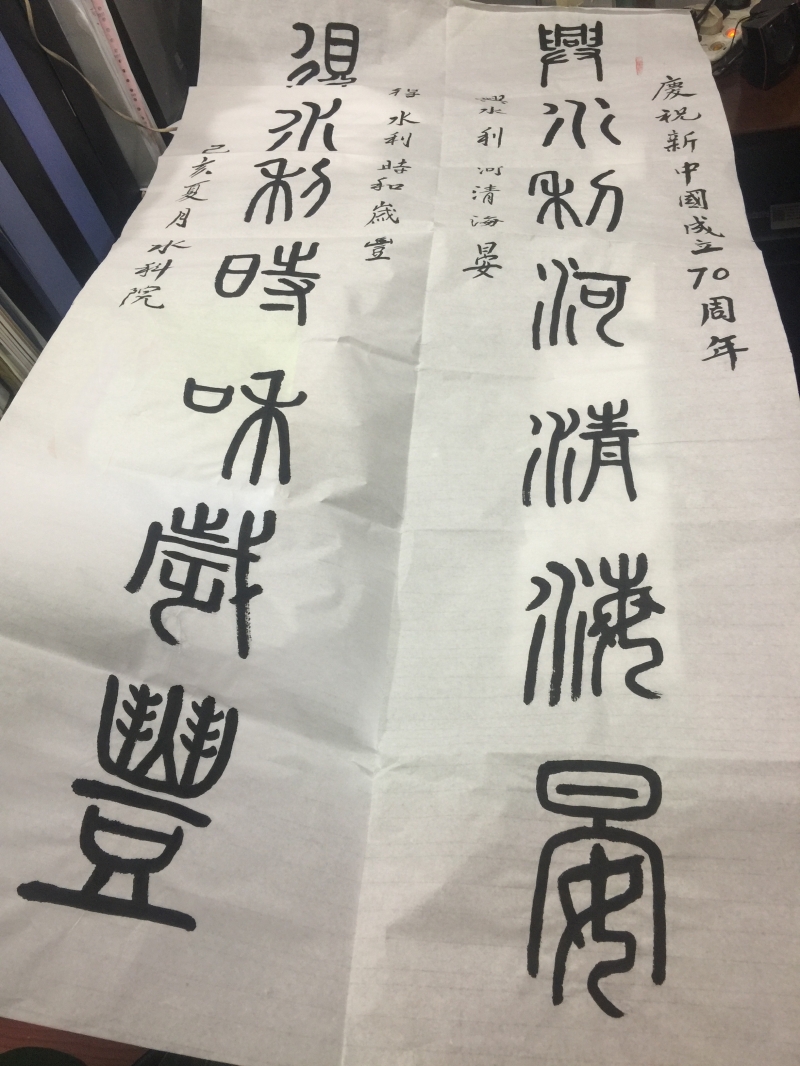 慶祝新中國成立70周年
興水利河清海晏
興水利河清海晏
得水利時和歲豐
得水利時和歲豐
己亥夏月水科院